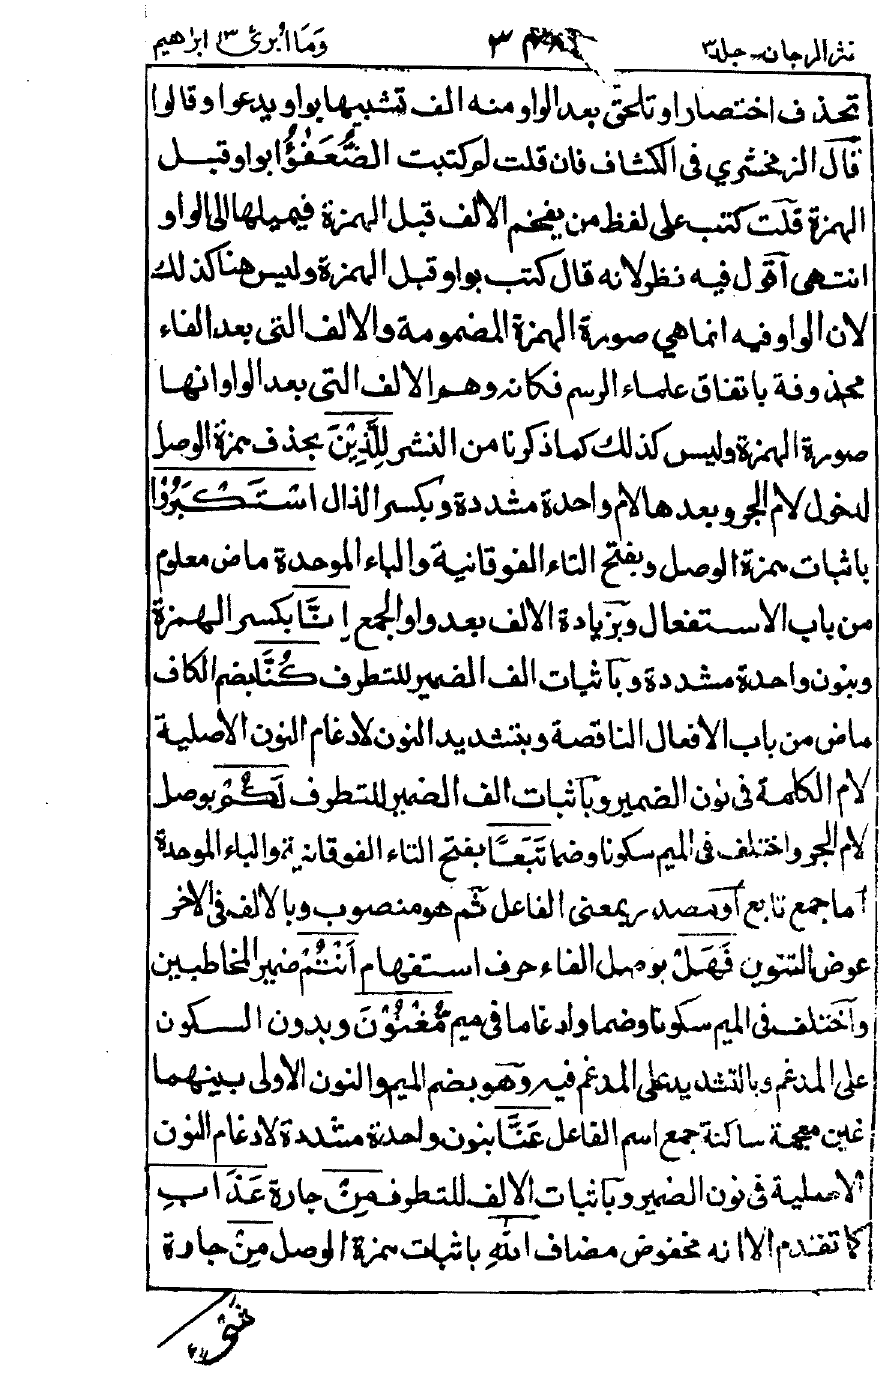 نثر المرجان - جلد ٣
وما أبرئ ١٣ ابراهيم
تحذف اختصارا وتلحق بعد الواو منه الف تشبيها بواو يدعوا وقالوا
قال الزمخشري في الكشاف فان قلت لم كتبت الضُّعَفٰٓؤُا بواو قبل
الهمزة قلت كتب على لفظ من يفخم الالف قبل الهمزة فيميلها الى الواو
انتهى اقول فيه نظر لانه قال كتب بواو قبل الهمزة وليس هنا كذلك
لان الواو فيه انما هي صورة الهمزة المضمومة والالف التي بعد الفاء
محذوفة باتفاق علماء الرسم فكانه وهم الالف التي بعد الواو انها
صورة الهمزة وليس كذلك كما ذكرنا من النشر لِلَّذِيْنَ بحذف همزة الوصل
لدخول لام الجر وبعدها لام واحدة مشددة وبكسر الذال اسْتَكْبَرُوْا
باثبات همزة الوصل وبفتح التاء الفوقانية والباء الموحدة ماض معلوم
من باب الاستفعال وبزيادة الالف بعد واو الجمع اِنَّا بكسر الهمزة
وبنون واحدة مشددة وباثبات الف الضمير للتطرف كُنَّا بضم الكاف
ماض من باب الافعال الناقصة وبتشديد النون لادغام النون الاصلية
لام الكلمة في نون الضمير وباثبات الف الضمير للتطرف لَكُمْ بوصل
لام الجر واختلف في الميم سكونا وضما تَبَعًا بفتح التاء الفوقانية والباء الموحدة
اما جمع تابع او مصدر بمعنى الفاعل ثم هو منصوب وبالالف في الاخر
عوض التنوين فَهَلْ بوصل الفاء حرف استفهام اَنْتُمْ ضمير المخاطبين
واختلف في الميم سكونا وضما وادغاما في ميم مُّغْنُوْنَ وبدون السكون
على المدغم وبالتشديد على المدغم فيه وهو بضم الميم والنون الاولى بينهما
غين معجمة ساكنة جمع اسم الفاعل عَنَّا بنون واحدة مشددة لادغام النون
الاصلية في نون الضمير وباثبات الالف للتطرف مِنْ جارة عَذَابِ
كما تقدم الا انه مخفوض مضاف اللّٰهِ باثبات همزة الوصل مِنْ جارة